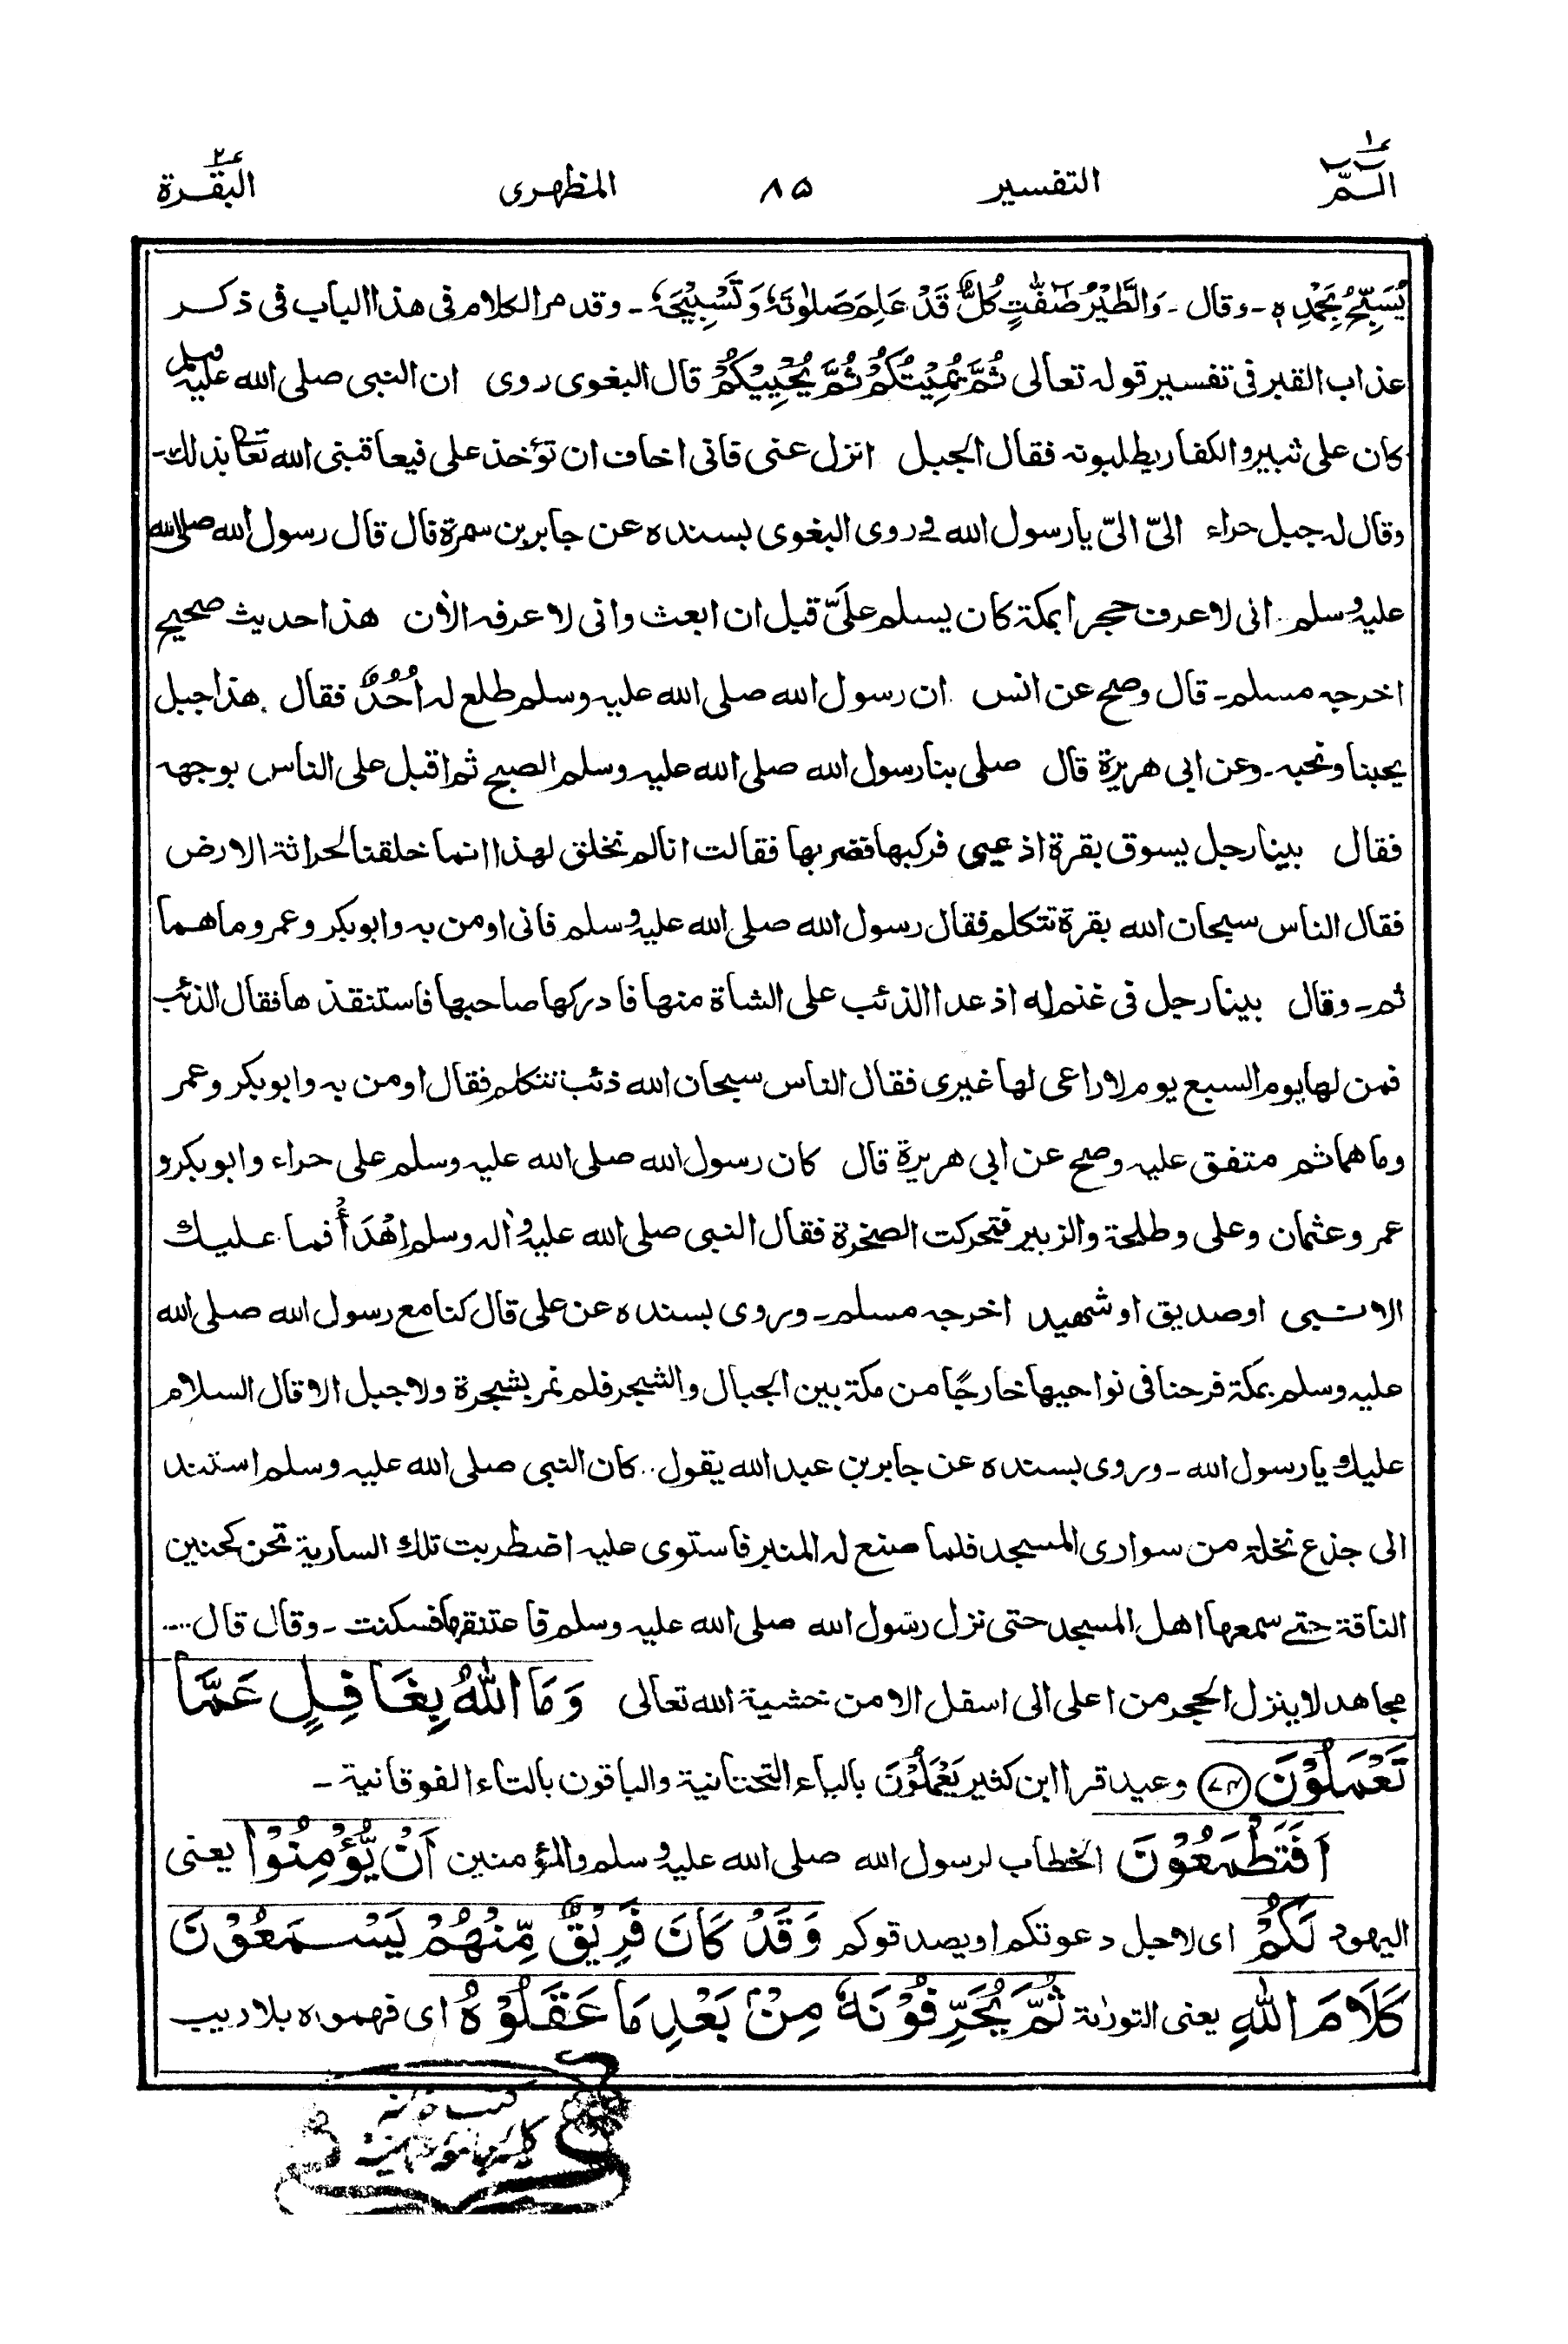 الٓمّٓ ١ التفسير ٨٥ المظهرى البقرة ٢
يُسَبِّحُ بِحَمْدِهٖ۔ وقال۔ وَالطَّيْرُ صٰٓفّٰتٍ كُلٌّ قَدْ عَلِمَ صَلَاتَهٗ وَتَسْبِيْحَهٗ۔ وقد مر الكلام فى هذا الباب فى ذكر
عذاب القبر فى تفسير قوله تعالى ثُمَّ يُمِيْتُكُمْ ثُمَّ يُحْيِيْكُمْ قال البغوى روى ان النبى صلى الله عليه وسلم
كان على ثبير والكفار يطلبونه فقال الجبل انزل عنى فانى اخاف ان تؤخذ على فيعاقبنى الله تعالى بذلك۔
وقال له جبل حراء الىّ الىّ يا رسول الله روى البغوى بسنده عن جابر بن سمرة قال قال رسول الله صلى الله
عليه وسلم انى لاعرف حجرا بمكة كان يسلم علىّ قبل ان ابعث وانى لاعرفه الاٰن هذا حديث صحيح
اخرجه مسلم۔ قال وصح عن انس ان رسول الله صلى الله عليه وسلم طلع له اُحُدٌ فقال هذا جبل
يحبنا ونحبه۔ وعن ابى هريرة قال صلى بنا رسول الله صلى الله عليه وسلم الصبح ثم اقبل على الناس بوجهه
فقال بينا رجل يسوق بقرة اذ عيى فركبها فضربها فقالت انا لم نخلق لهذا انما خلقنا لحراثة الارض
فقال الناس سبحان الله بقرة تتكلم فقال رسول الله صلى الله عليه وسلم فانى اومن به وابوبكر وعمر وما هما
ثم۔ وقال بينا رجل فى غنم له اذ عدا الذئب على الشاة منها فادركها صاحبها فاستنقذها فقال الذئب
فمن لها يوم السبع يوم لا راعى لها غيرى فقال الناس سبحان الله ذئب تتكلم فقال اومن به وابوبكر وعمر
وما هما ثم متفق عليه وصح عن ابى هريرة قال كان رسول الله صلى الله عليه وسلم على حراء وابوبكر و
عمر وعثمان وعلى وطلحة والزبير فتحركت الصخرة فقال النبى صلى الله عليه واٰله وسلم اِهْدَأْ فما عليك
الا نبى او صديق او شهيد اخرجه مسلم۔ وروى بسنده عن على قال كنا مع رسول الله صلى الله
عليه وسلم بمكة فرحنا فى نواحيها خارجًا من مكة بين الجبال والشجر فلم نمر بشجرة ولا جبل الا قال السلام
عليك يا رسول الله۔ وروى بسنده عن جابر بن عبد الله يقول كان النبى صلى الله عليه وسلم استند
الى جذع نخلة من سوارى المسجد فلما صنع له المنبر فاستوى عليه اضطربت تلك السارية تحن كحنين
الناقة حتى سمعها اهل المسجد حتى نزل رسول الله صلى الله عليه وسلم فاعتنقها فسكنت۔ وقال قال....
مجاهد لا ينزل الحجر من اعلى الى اسفل الا من خشية الله تعالى وَمَا اللّٰهُ بِغَافِلٍ عَمَّا
تَعْمَلُوْنَ ﴿٧٤﴾ وعيد قرا ابن كثير يَعْمَلُوْنَ بالياء التحتانية والباقون بالتاء الفوقانية۔
اَفَتَطْمَعُوْنَ الخطاب لرسول الله صلى الله عليه وسلم والمؤمنين اَنْ يُّؤْمِنُوْا يعنى
اليهود لَكُمْ اى لاجل دعوتكم او يصدقوكم وَقَدْ كَانَ فَرِيْقٌ مِّنْهُمْ يَسْمَعُوْنَ
كَلَامَ اللّٰهِ يعنى التورٰىة ثُمَّ يُحَرِّفُوْنَهٗ مِنْۢ بَعْدِ مَا عَقَلُوْهُ اى فهموه بلا ريب
كتب خانه